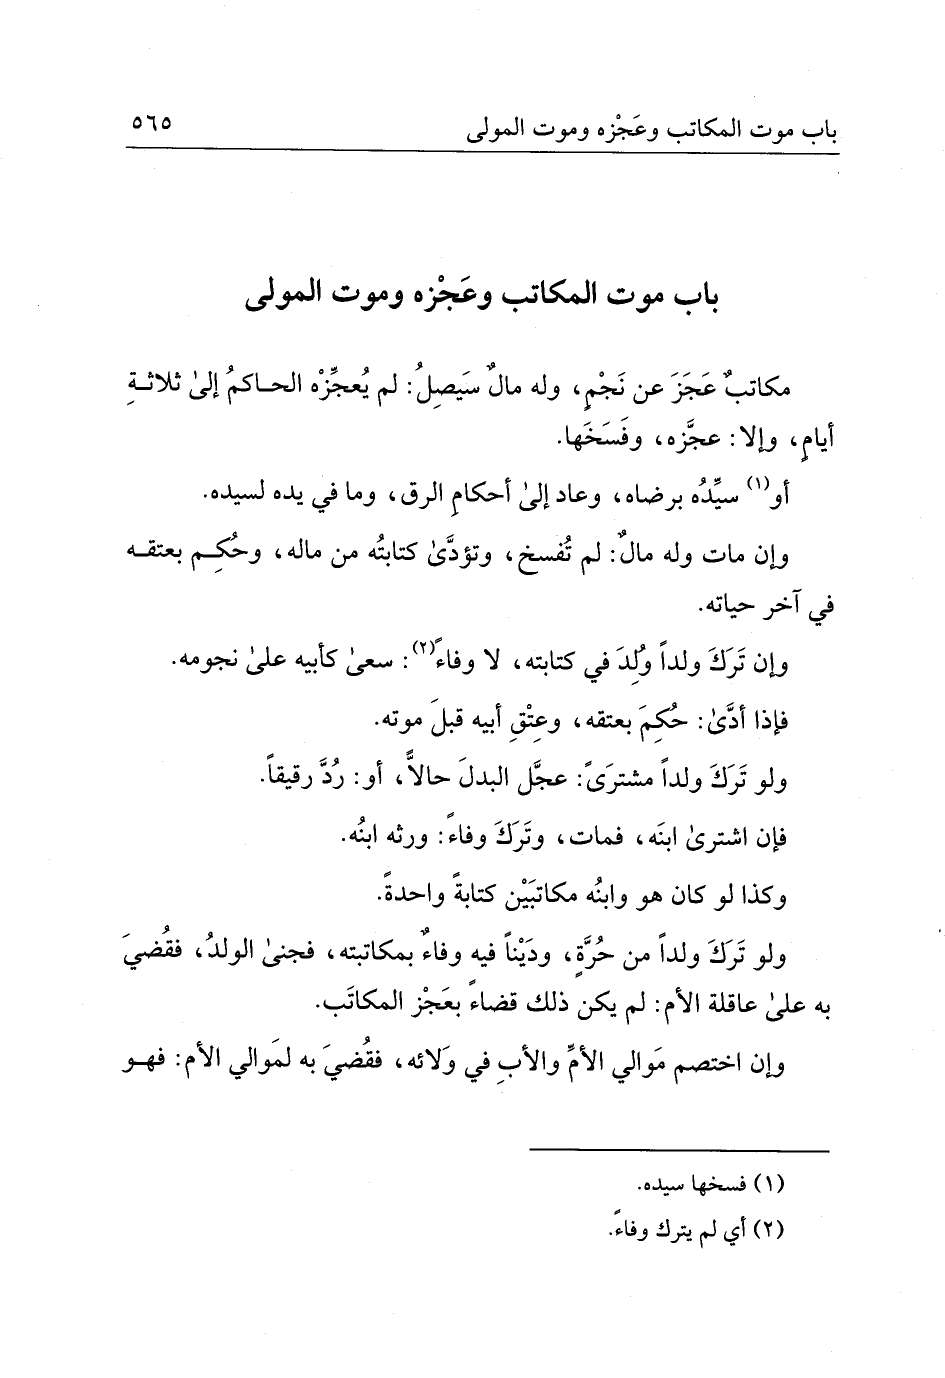 باب موت المكاتب وعَجْزه وموت المولى ٥٦٥
باب موت المكاتب وعَجْزه وموت المولى
مكاتبٌ عَجَزَ عن نَجْمٍ، وله مالٌ سَيَصِلُ: لم يُعجِّزْه الحاكمُ إلىٰ ثلاثةِ
أيامٍ، وإلا: عجَّزه، وفَسَخَها.
أو(١) سيِّدُه برضاه، وعاد إلىٰ أحكامِ الرق، وما في يده لسيده.
وإن مات وله مالٌ: لم تُفسخ، وتؤدَّىٰ كتابتُه من ماله، وحُكِم بعتقه
في آخر حياته.
وإن تَرَكَ ولداً وُلِدَ في كتابته، لا وفاءً(٢): سعىٰ كأبيه علىٰ نجومه.
فإذا أدَّىٰ: حُكِمَ بعتقه، وعِتْقِ أبيه قبلَ موته.
ولو تَرَكَ ولداً مشترَىً: عجَّل البدلَ حالاًّ، أو: رُدَّ رقيقاً.
فإن اشترىٰ ابنَه، فمات، وتَرَكَ وفاءً: ورثه ابنُه.
وكذا لو كان هو وابنُه مكاتبَيْن كتابةً واحدةً.
ولو تَرَكَ ولداً من حُرَّةٍ، ودَيْناً فيه وفاءٌ بمكاتبته، فجنىٰ الولدُ، فقُضيَ
به علىٰ عاقلة الأم: لم يكن ذلك قضاءً بعَجْز المكاتَب.
وإن اختصم مَوالي الأمِّ والأبِ في وَلائه، فقُضيَ به لمَوالي الأم: فهو
(١) فسخها سيده.
(٢) أي لم يترك وفاءً.